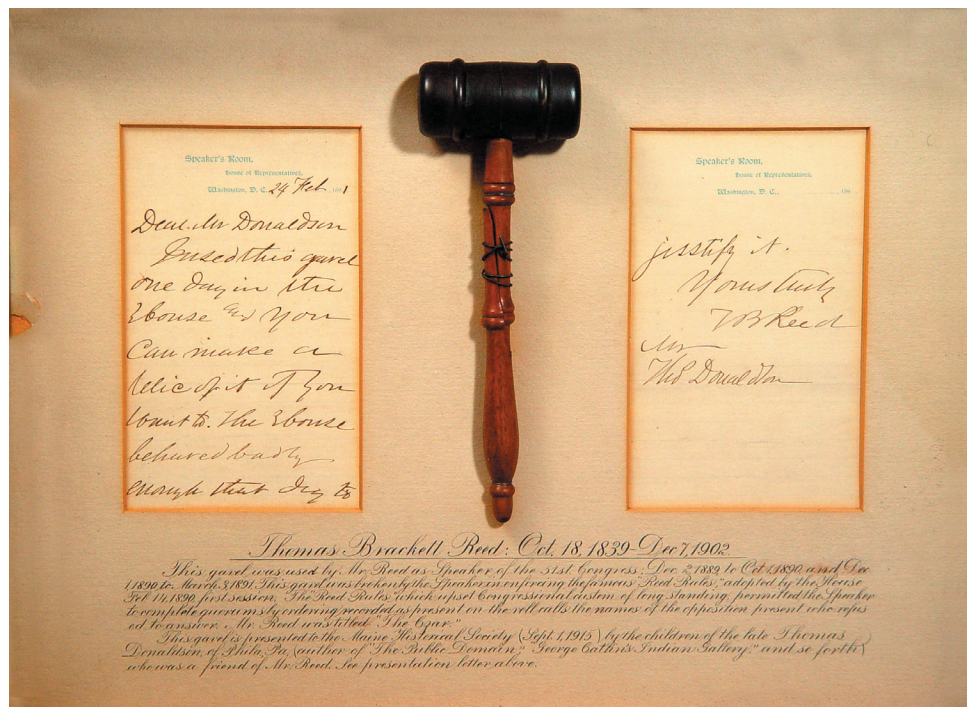 Speaker's Room,
House of Representatives,
Washington, D. C. 24 Feb 1891
Dear Mr Donaldson
I used this gavel
one day in the
House & you
can make a
relic of it if you
want to. The House
behaved badly
enough that day to
Speaker's Room,
House of Representatives,
Washington, D. C., 189
justify it.
Yours truly
T B Reed
Mr
Tho Donaldson
Thomas Brackett Reed: Oct. 18, 1839-Dec 7, 1902.
This gavel was used by Mr. Reed as Speaker of the 51st. Congress: Dec 2, 1889, to Oct 1, 1890, and Dec
1, 1890 to March 3, 1891. This gavel was broken by the Speaker in enforcing the famous "Reed Rules," adopted by the House
Feb 14, 1890, first session. The "Reed Rules" which upset Congressional custom of long standing, permitted the Speaker
to complete quorums by ordering recorded as present on the roll calls the names of the opposition present who refus
ed to answer. Mr. Reed was titled "The Czar."
This gavel is presented to the Maine Historical Society (Sept. 1, 1915) by the children of the late Thomas
Donaldson, of Phila, Pa, (author of "The Public Domain," "George Catlin's Indian Gallery," and so forth)
who was a friend of Mr. Reed. See presentation letter above.